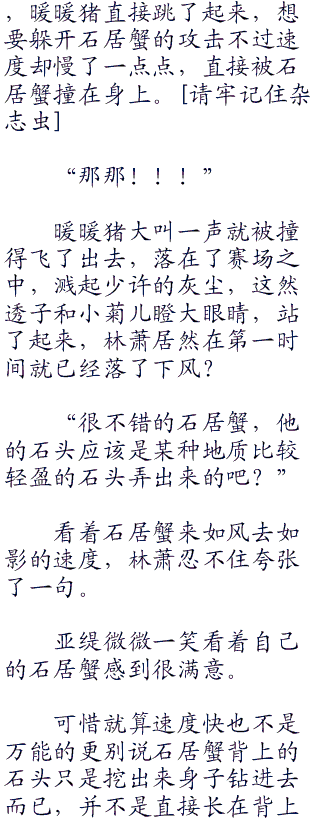 ，暖暖猪直接跳了起来，想
要躲开石居蟹的攻击不过速
度却慢了一点点，直接被石
居蟹撞在身上。[请牢记住杂
志虫]
“那那！！！”
暖暖猪大叫一声就被撞
得飞了出去，落在了赛场之
中，溅起少许的灰尘，这然
透子和小菊儿瞪大眼睛，站
了起来，林萧居然在第一时
间就已经落了下风？
“很不错的石居蟹，他
的石头应该是某种地质比较
轻盈的石头弄出来的吧？”
看着石居蟹来如风去如
影的速度，林萧忍不住夸张
了一句。
亚缇微微一笑看着自己
的石居蟹感到很满意。
可惜就算速度快也不是
万能的更别说石居蟹背上的
石头只是挖出来身子钻进去
而已，并不是直接长在背上